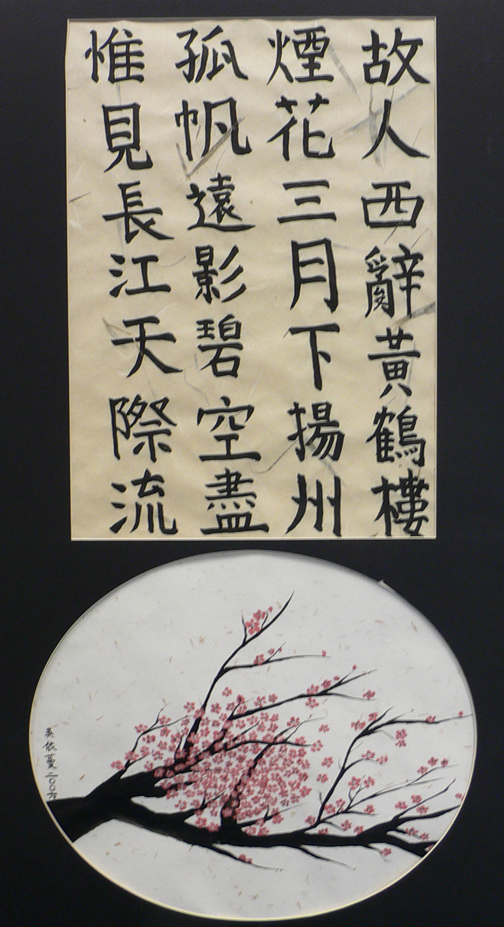 故人西辭黃鶴樓
煙花三月下揚州
孤帆遠影碧空盡
惟見長江天際流
吳依蔓二〇〇六